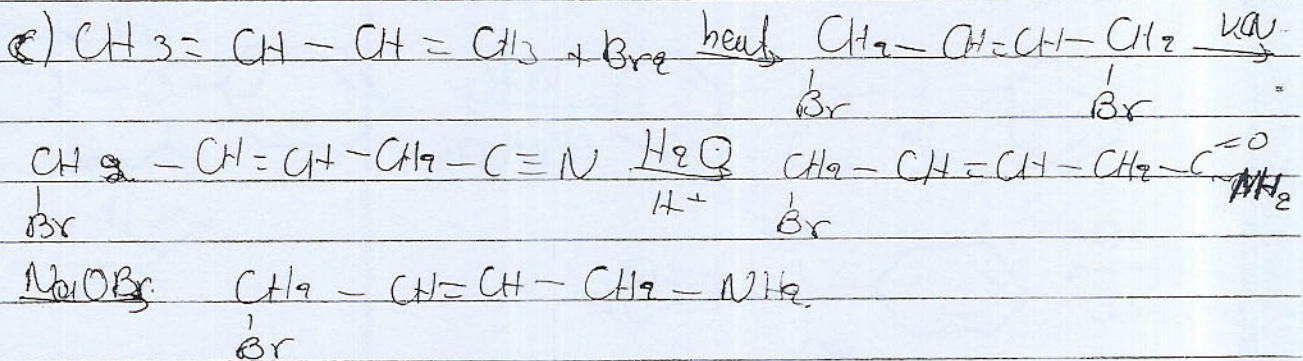 c) CH3 = CH - CH = CH3 + Br2 heat CH2 - CH=CH- CH2
Br Br
CH2 - CH=CH-CH2-C≡N H2O CH2 - CH=CH-CH2-C=O NH2
Br H+ Br
NaOBr CH2 - CH=CH- CH2-NH2
Br